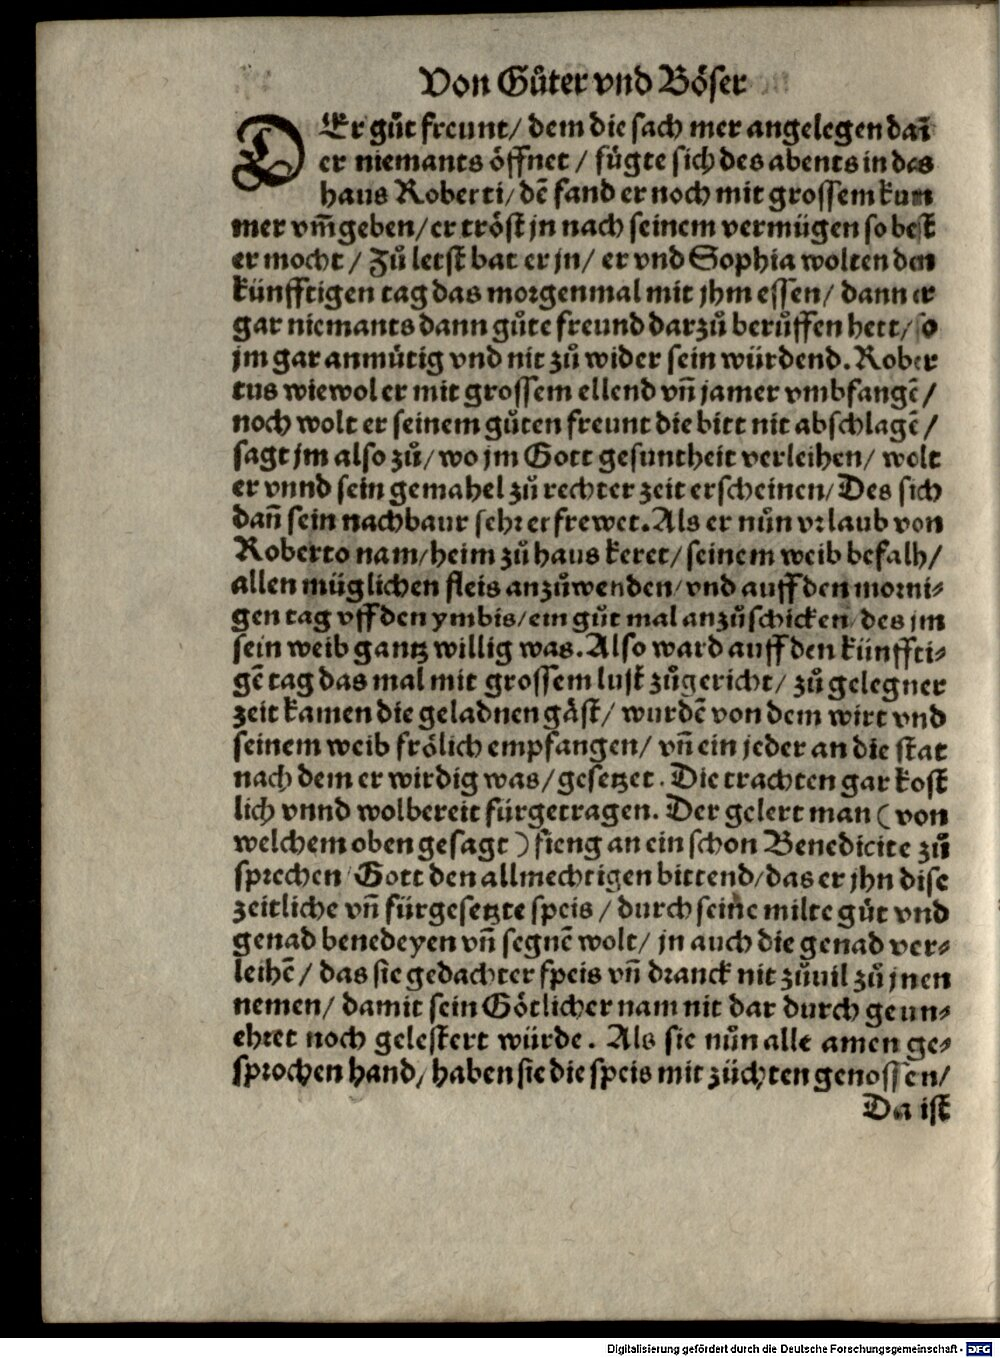 Von Gůter vnd Böser
DEr gůt freunt/ dem die sach mer angelegen dañ
er niemants öffnet / fügte sich des abents in das
haus Roberti/ dē fand er noch mit grossem kum
mer vm̄geben/ er tröst jn nach seinem vermügen so best
er mocht / Zů letst bat er jn/ er vnd Sophia wolten den
künfftigen tag das morgenmal mit jhm essen/ dann er
gar niemants dann gůte freund darzů berůffen hett/ so
jm gar anmütig vnd nit zů wider sein würdend. Rober
tus wiewol er mit grossem ellend vñ jamer vmbfangē/
noch wolt er seinem gůten freunt die bitt nit abschlagē/
sagt jm also zů/ wo jm Gott gesuntheit verleihen/ wolt
er vnnd sein gemahel zů rechter zeit erscheinen/ Des sich
dañ sein nachbaur sehr erfrewet. Als er nůn vrlaub von
Roberto nam/ heim zů haus keret/ seinem weib befalh/
allen müglichen fleis anzůwenden/ vnd auff den morni⸗
gen tag vff den ymbis/ ein gůt mal anzůschicken/ des jm
sein weib gantz willig was. Also ward auff den künffti⸗
gē tag das mal mit grossem lust zůgericht/ zů gelegner
zeit kamen die geladnen gäst/ wurdē von dem wirt vnd
seinem weib frölich empfangen/ vñ ein jeder an die stat
nach dem er wirdig was/ gesetzet. Die trachten gar kost
lich vnnd wolbereit fürgetragen. Der gelert man ( von
welchem oben gesagt ) fieng an ein schon Benedicite zů
sprechen/ Gott den allmechtigen bittend/ das er jhn dise
zeitliche vñ fürgesetzte speis / durch seine milte gůt vnd
genad benedeyen vñ segnē wolt/ jn auch die genad ver⸗
leihē/ das sie gedachter speis vñ dranck nit zůuil zů jnen
nemen/ damit sein Götlicher nam nit dar durch geun⸗
ehret noch gelestert würde. Als sie nůn alle amen ge⸗
sprochen hand/ haben sie die speis mit züchten genossen/
Da ist
Digitalisierung gefördert durch die Deutsche Forschungsgemeinschaft - DFG